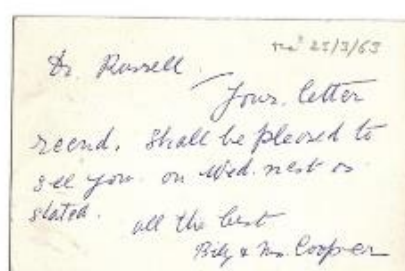 recd 25/3/63
Dr. Russell.
Your letter
recend. Shall be pleased to
see you on Wed. next as
stated.
all the best
Billy & Mrs. Cooper